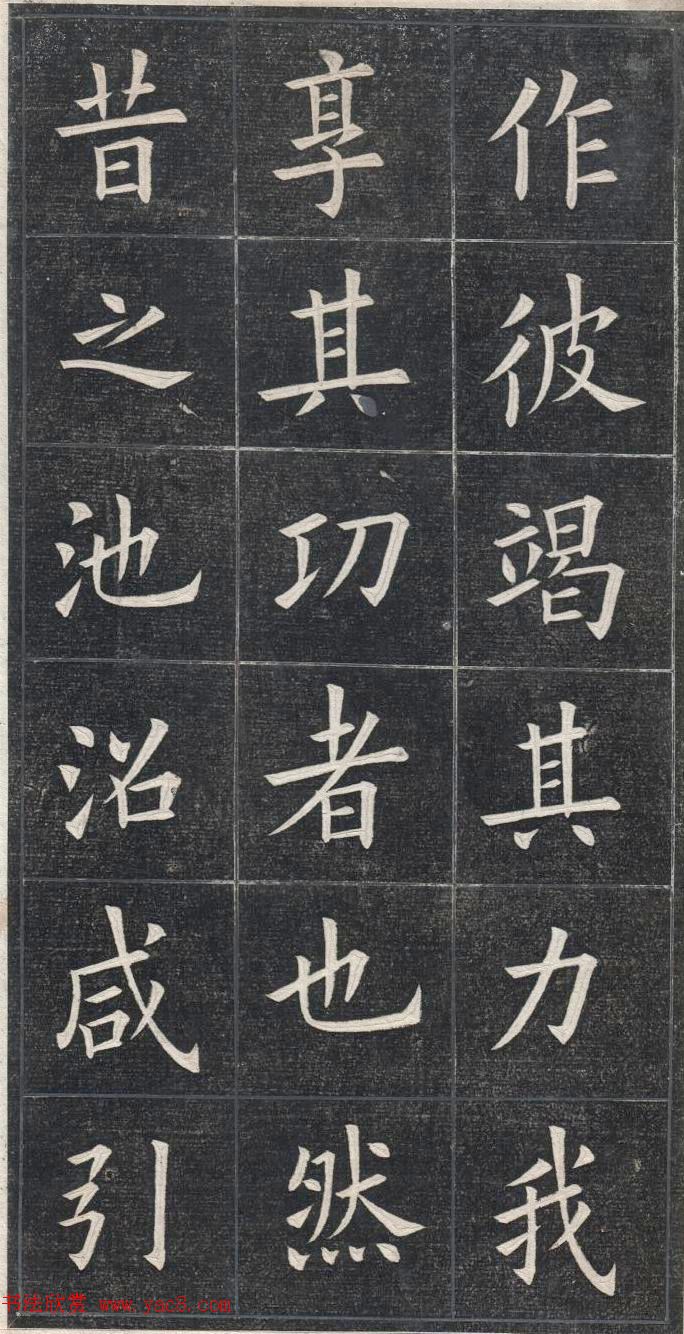 作彼竭其力我
享其功者也然
昔之池沼咸引
书法欣赏 www.yac8.com